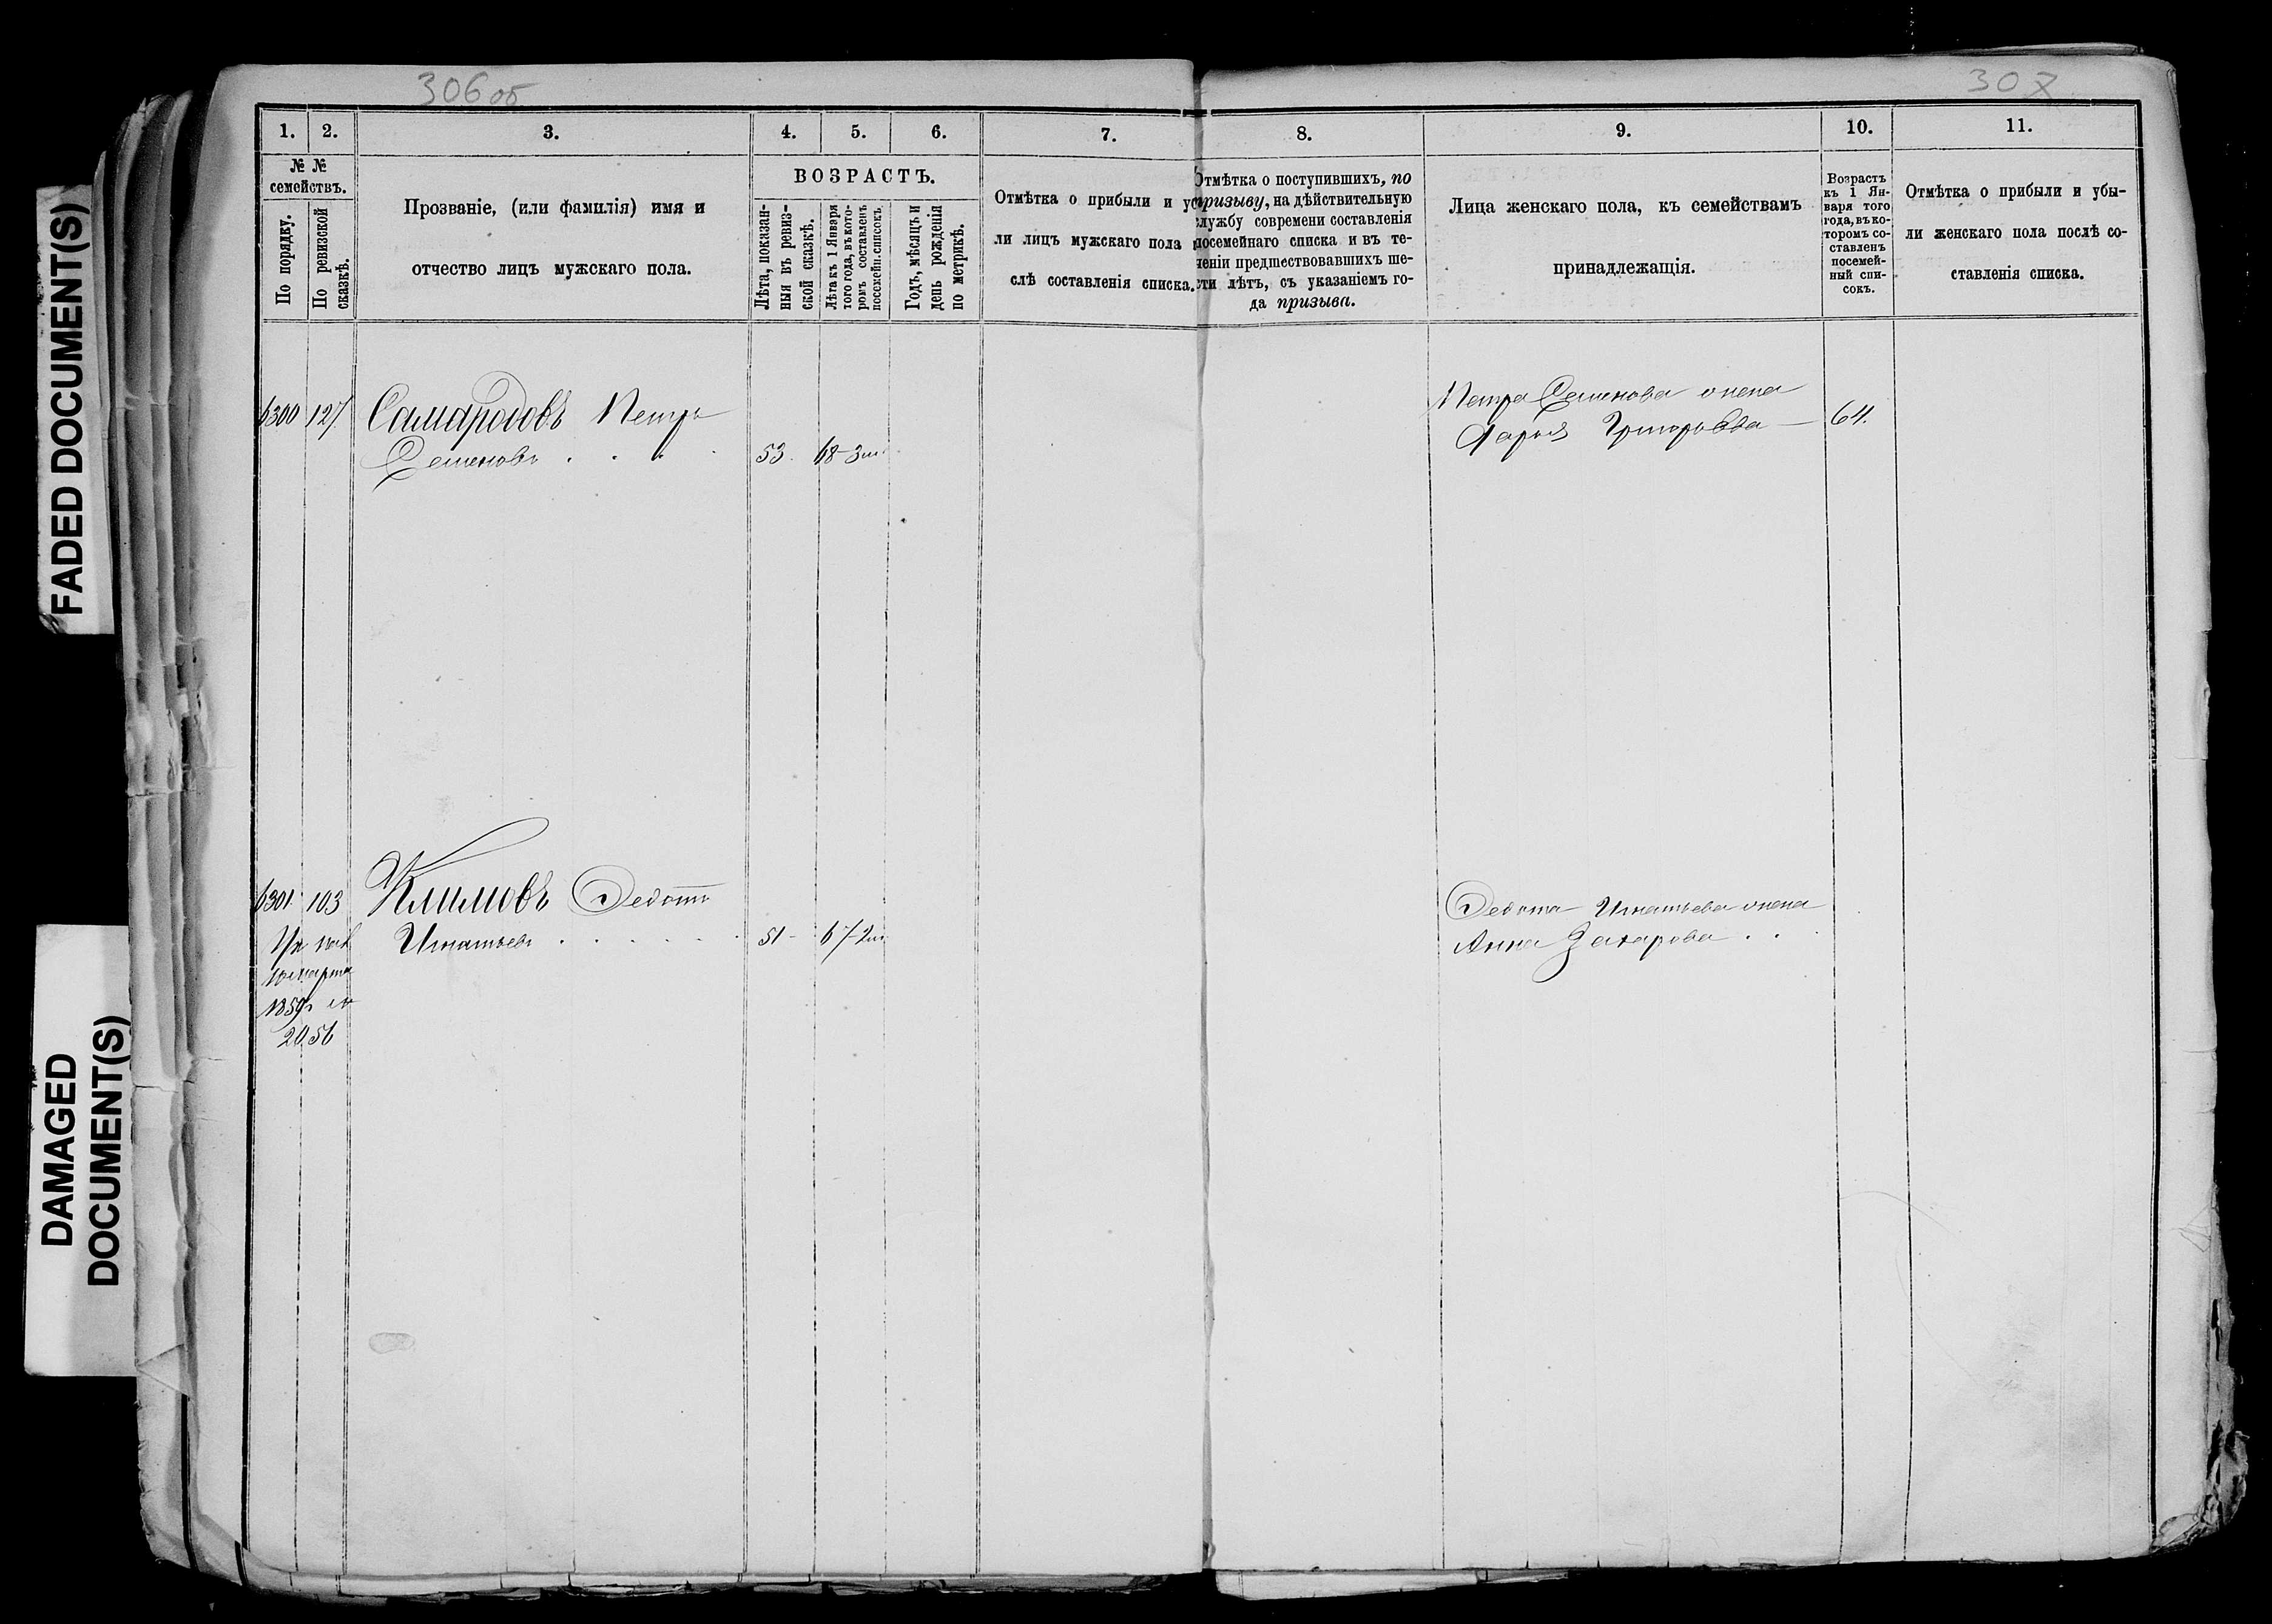 FADED DOCUMENT(S)
DAMAGED
DOCUMENT(S)
306об
307
1.
2.
3.
4.
5.
6.
7.
8.
9.
10.
11.
№ №
семействъ.
По порядку.
По ревизской
сказкѣ.
Прозваніе, (или фамилія) имя и
отчество лицъ мужскаго пола.
ВОЗРАСТЪ.
Лѣта, показан-
ныя въ ревиз-
ской сказкѣ.
Лѣта къ 1 Января
того года, въ кото-
ромъ составленъ
посемейн. списокъ.
Годъ, мѣсяцъ и
день рожденія
по метрикѣ.
Отмѣтка о прибыли и у
ли лицъ мужскаго пола
слѣ составленія списка.
Отмѣтка о поступившихъ, по
призыву, на дѣйствительную
службу современи составленія
посемейнаго списка и въ те-
ченіи предшествовавшихъ ше-
сти лѣтъ, съ указаніемъ го-
да призыва.
Лица женскаго пола, къ семействамъ
принадлежащія.
Возрастъ
къ 1 Ян-
варя того
года, въ ко-
торомъ со-
ставленъ
посемей-
ный спи-
сокъ.
Отмѣтка о прибыли и убы-
ли женскаго пола послѣ со-
ставленія списка.
6300 127 Самародовъ Петръ
Семеновъ . . . . 53. 68-3м
Петра Семенова жена
Дарья Григорьева — 64.
6301 103 Климовъ Федотъ
Игнатьевъ . . . . . 51- 67-2м
марта
1859г
2056
Федота Игнатьева жена
Анна Захарова . . .